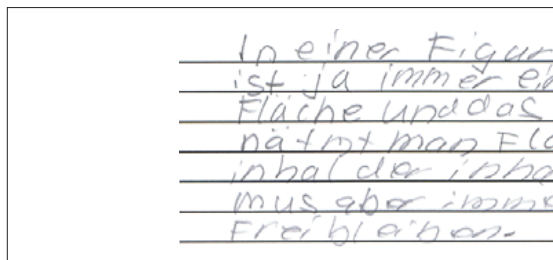 In einer Figur
ist ja immer ein
Fläche und das
nätmt man Flä
inhal der inha
mus aber imme
Frei bleiben.